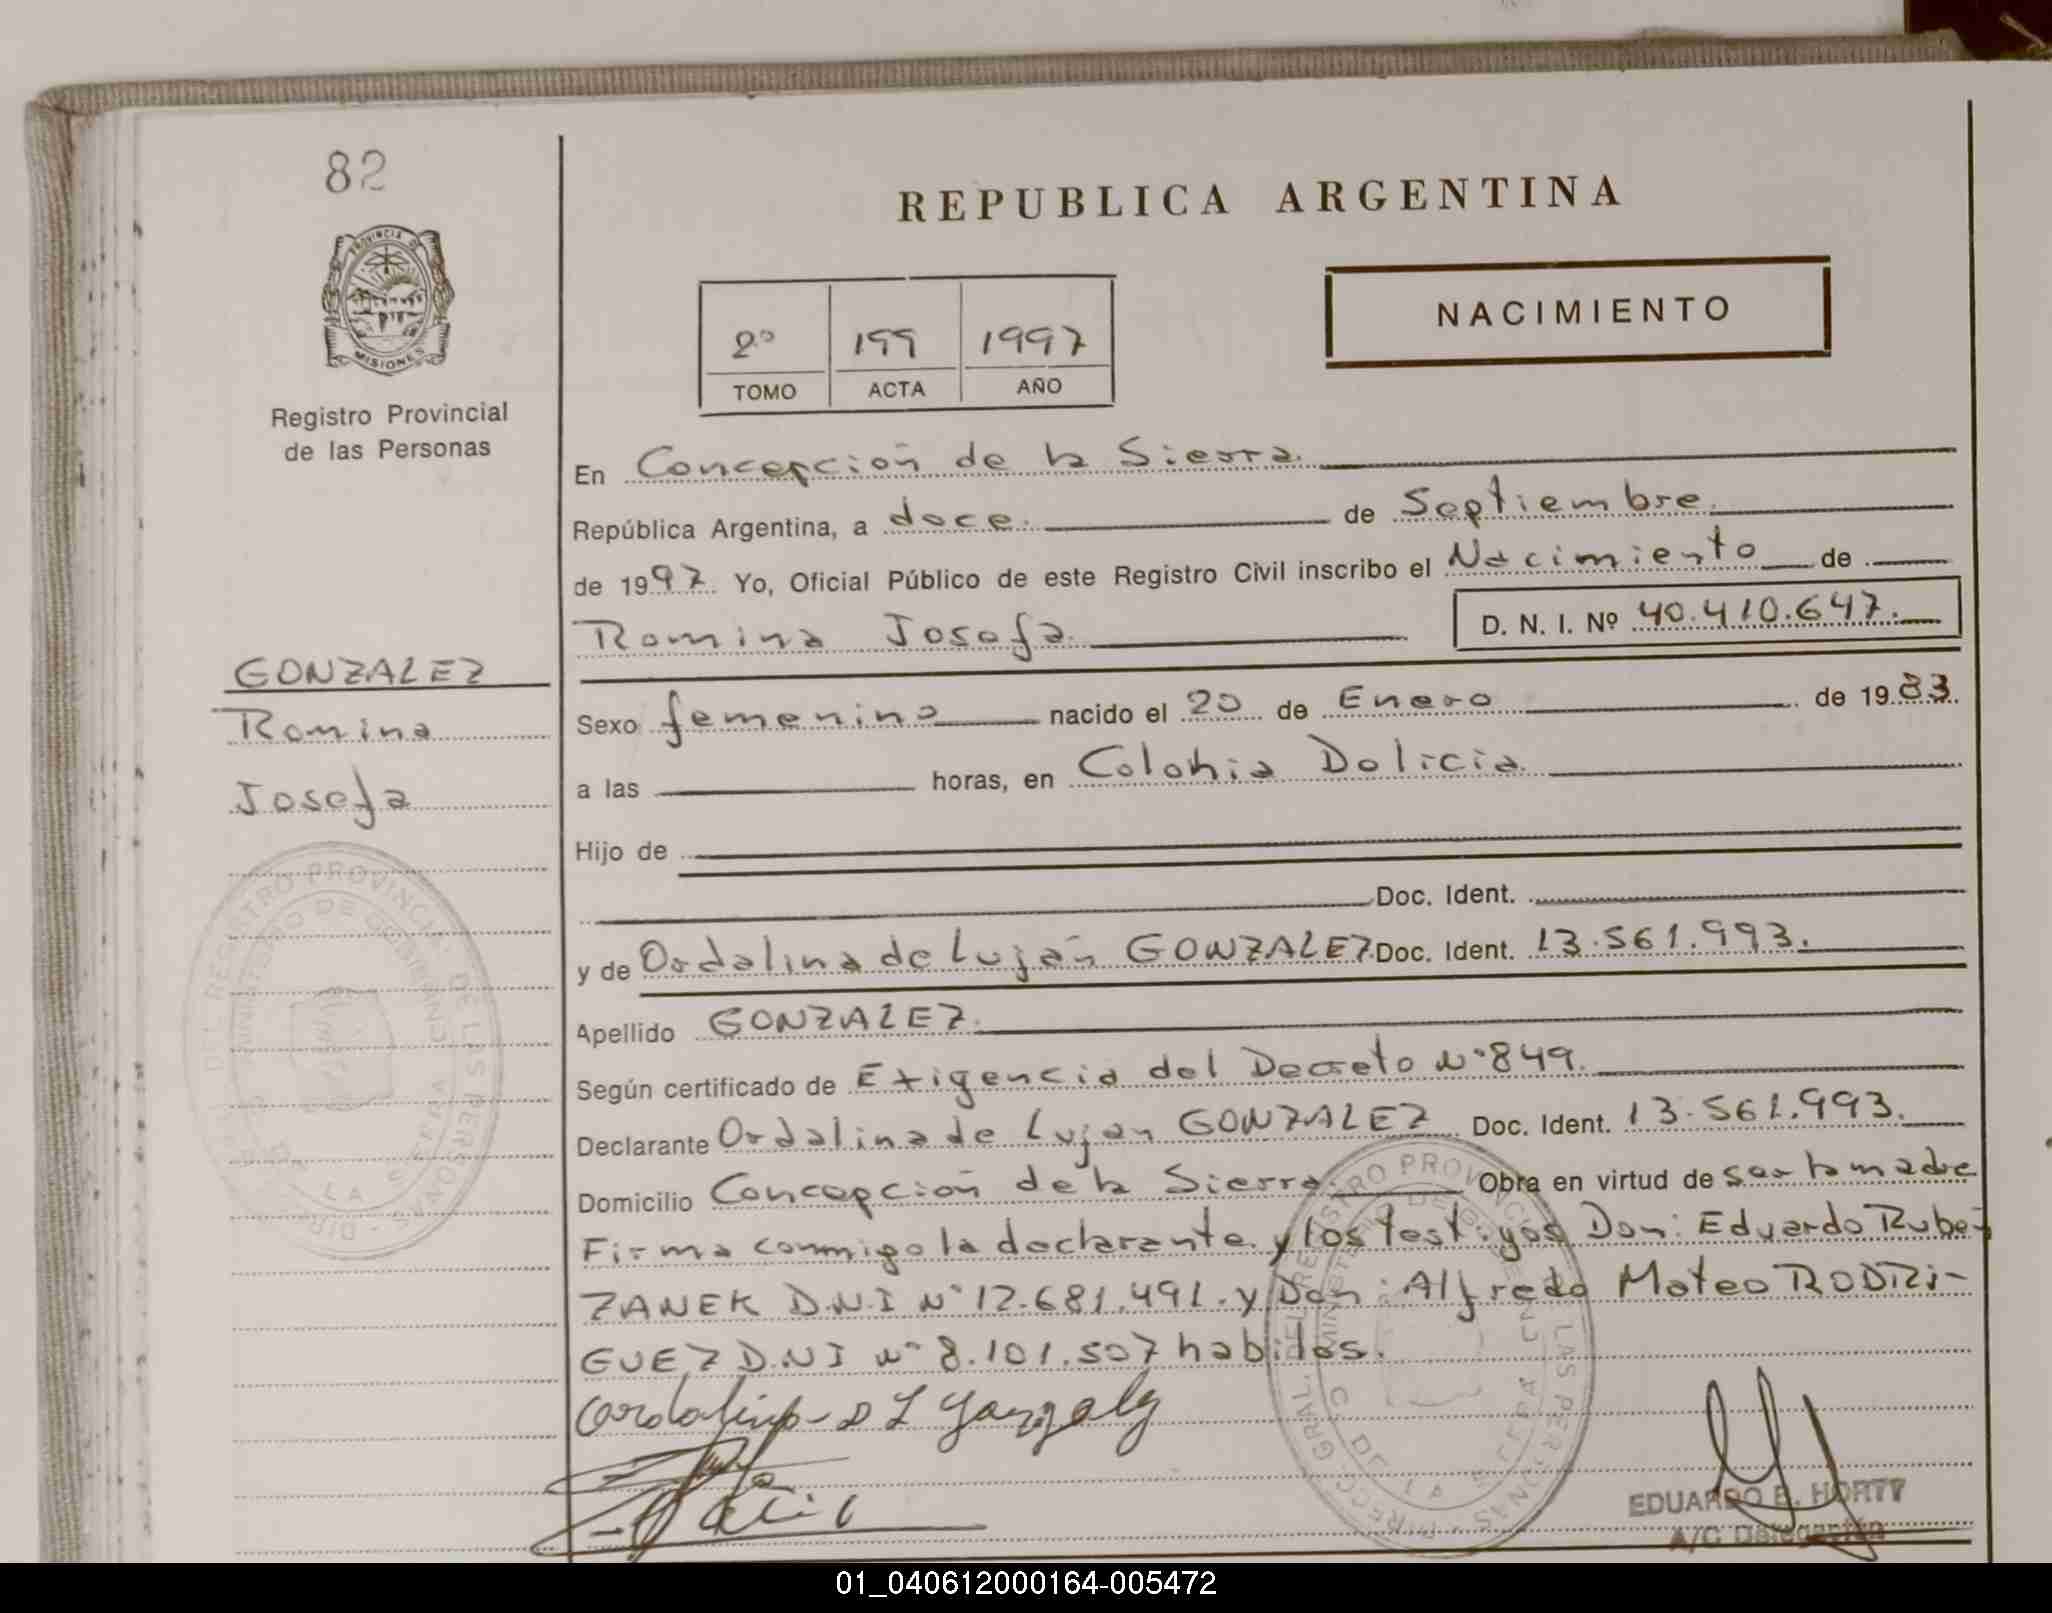 82
PROVINCIA DE
MISIONES
Registro Provincial
de las Personas
REPUBLICA ARGENTINA
NACIMIENTO
2º 199 1997
TOMO ACTA AÑO
En Concepción de la Sierra.
República Argentina, a doce. de Septiembre.
de 1997. Yo, Oficial Público de este Registro Civil inscribo el Nacimiento de
Romina Josefa. D. N. I. Nº 40.410.647.
GONZALEZ
Romina
Josefa
Sexo femenino nacido el 20 de Enero de 1983.
a las horas, en Colonia Delicia.
Hijo de
Doc. Ident.
y de Ordalina de Luján GONZALEZ Doc. Ident. 13.561.993.
Apellido GONZALEZ.
Según certificado de Exigencia del Decreto Nº 849.
Declarante Ordalina de Lujan GONZALEZ Doc. Ident. 13.561.993.
Domicilio Concepción de la Sierra. Obra en virtud de ser la madre
Firma conmigo la declarante y los testigos Don: Eduardo Rubén
ZANEK D.N.I Nº 12.681.491. y Don: Alfredo Mateo RODRI-
GUEZ D.N.I Nº 8.101.507 habiles.
EDUARDO E. HORTT
A/C Delegación
01_040612000164-005472